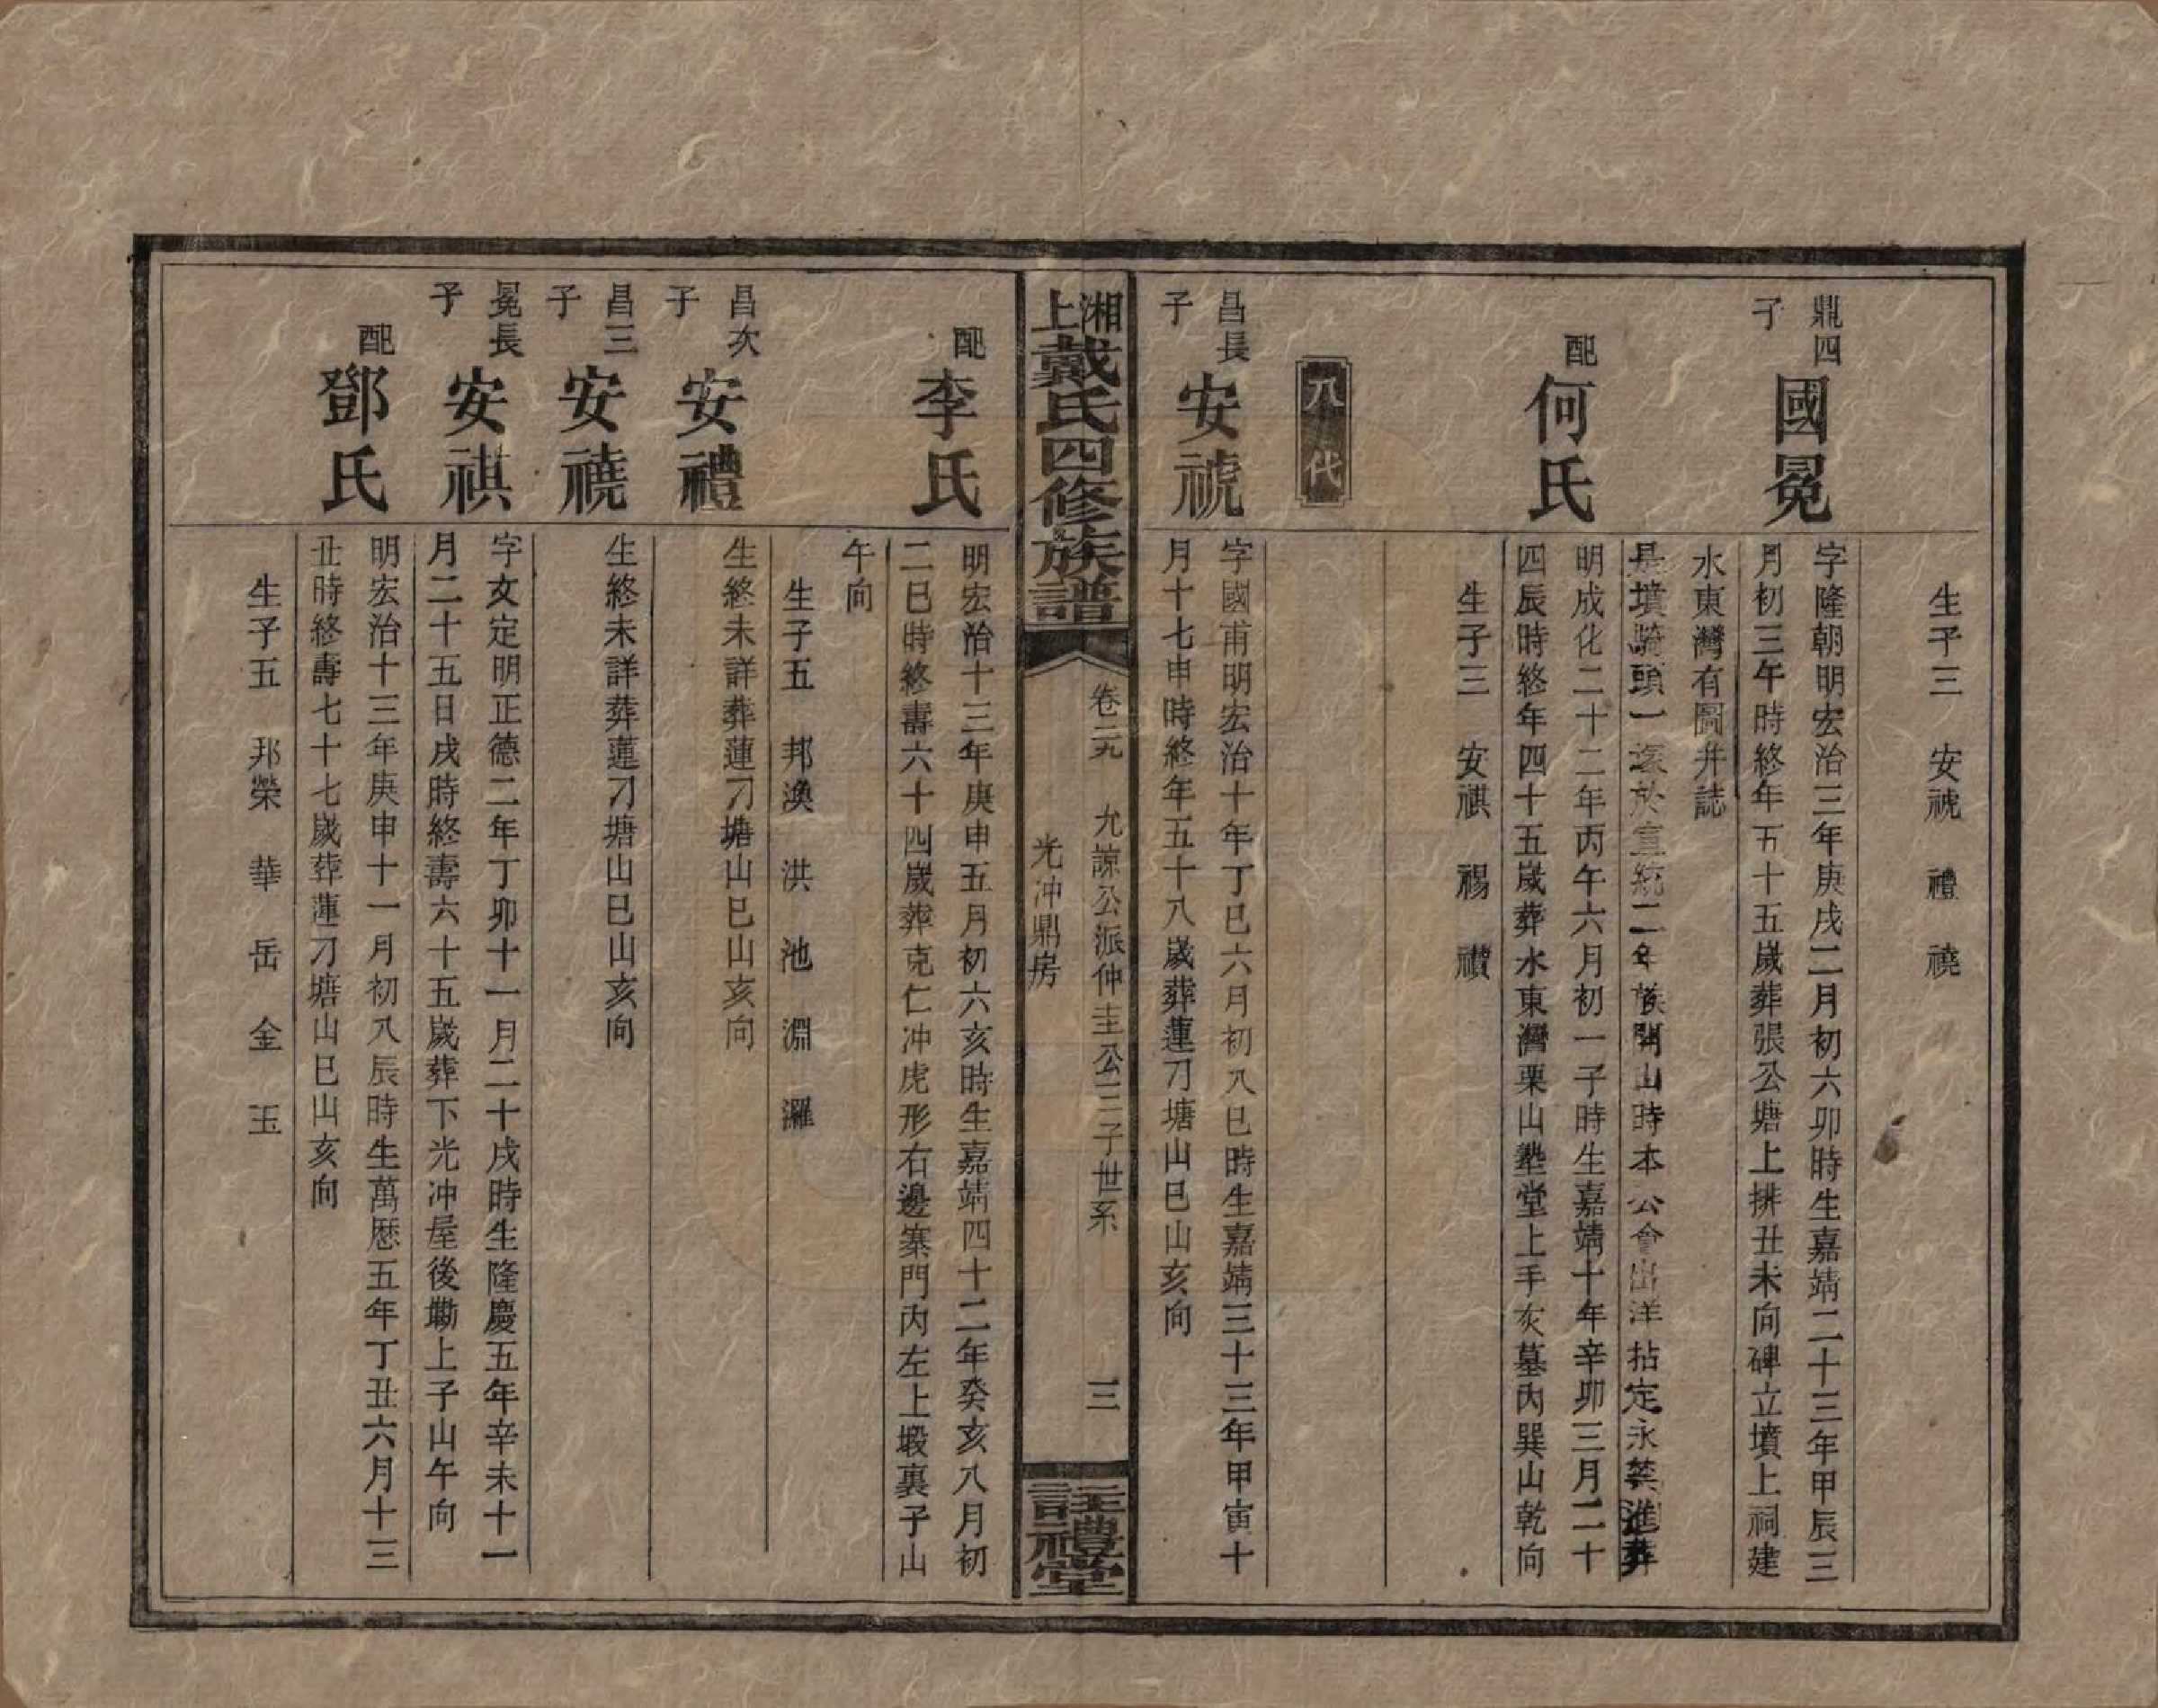 生子三 安禠 禮 禮
鼎四子
國冕
字隆朝明宏治三年庚戌二月初六卯時生嘉靖二十三年甲辰三
月初三午時終年五十五歲葬張公塘上排丑未向碑立墳上祠建
水東灣有圖并誌
配
何氏
是墳騎頭一塚於宣統二年族閧山時本公會出洋拈定永禁進葬
明成化二十二年丙午六月初一子時生嘉靖十年辛卯三月二十
四辰時終年四十五歲葬水東灣栗山塾堂上手灰墓內巽山乾向
生子三 安祺 禓 禶
八代
昌長子
安禠
字國甫明宏治十年丁巳六月初八巳時生嘉靖三十三年甲寅十
月十七申時終年五十八歲葬蓮刀塘山巳山亥向
湘上戴氏四修族譜
卷二九 九諒公派仲圭公三子世系
光冲鼎房
三
註禮堂
配
李氏
明宏治十三年庚申五月初六亥時生嘉靖四十二年癸亥八月初
二巳時終壽六十四歲葬克仁冲虎形右邊寨門內左上塅裏子山
午向
生子五 邦渙 洪 池 淵 濯
昌次子
安禮
生終未詳葬蓮刀塘山巳山亥向
昌三子
安禮
生終未詳葬蓮刀塘山巳山亥向
冕長子
安祺
字文定明正德二年丁卯十一月二十戌時生隆慶五年辛未十一
月二十五日戌時終壽六十五歲葬下光冲屋後墈上子山午向
配
鄧氏
明宏治十三年庚申十一月初八辰時生萬歷五年丁丑六月十三
丑時終壽七十七歲葬蓮刀塘山巳山亥向
生子五 邦榮 華 岳 金 玉